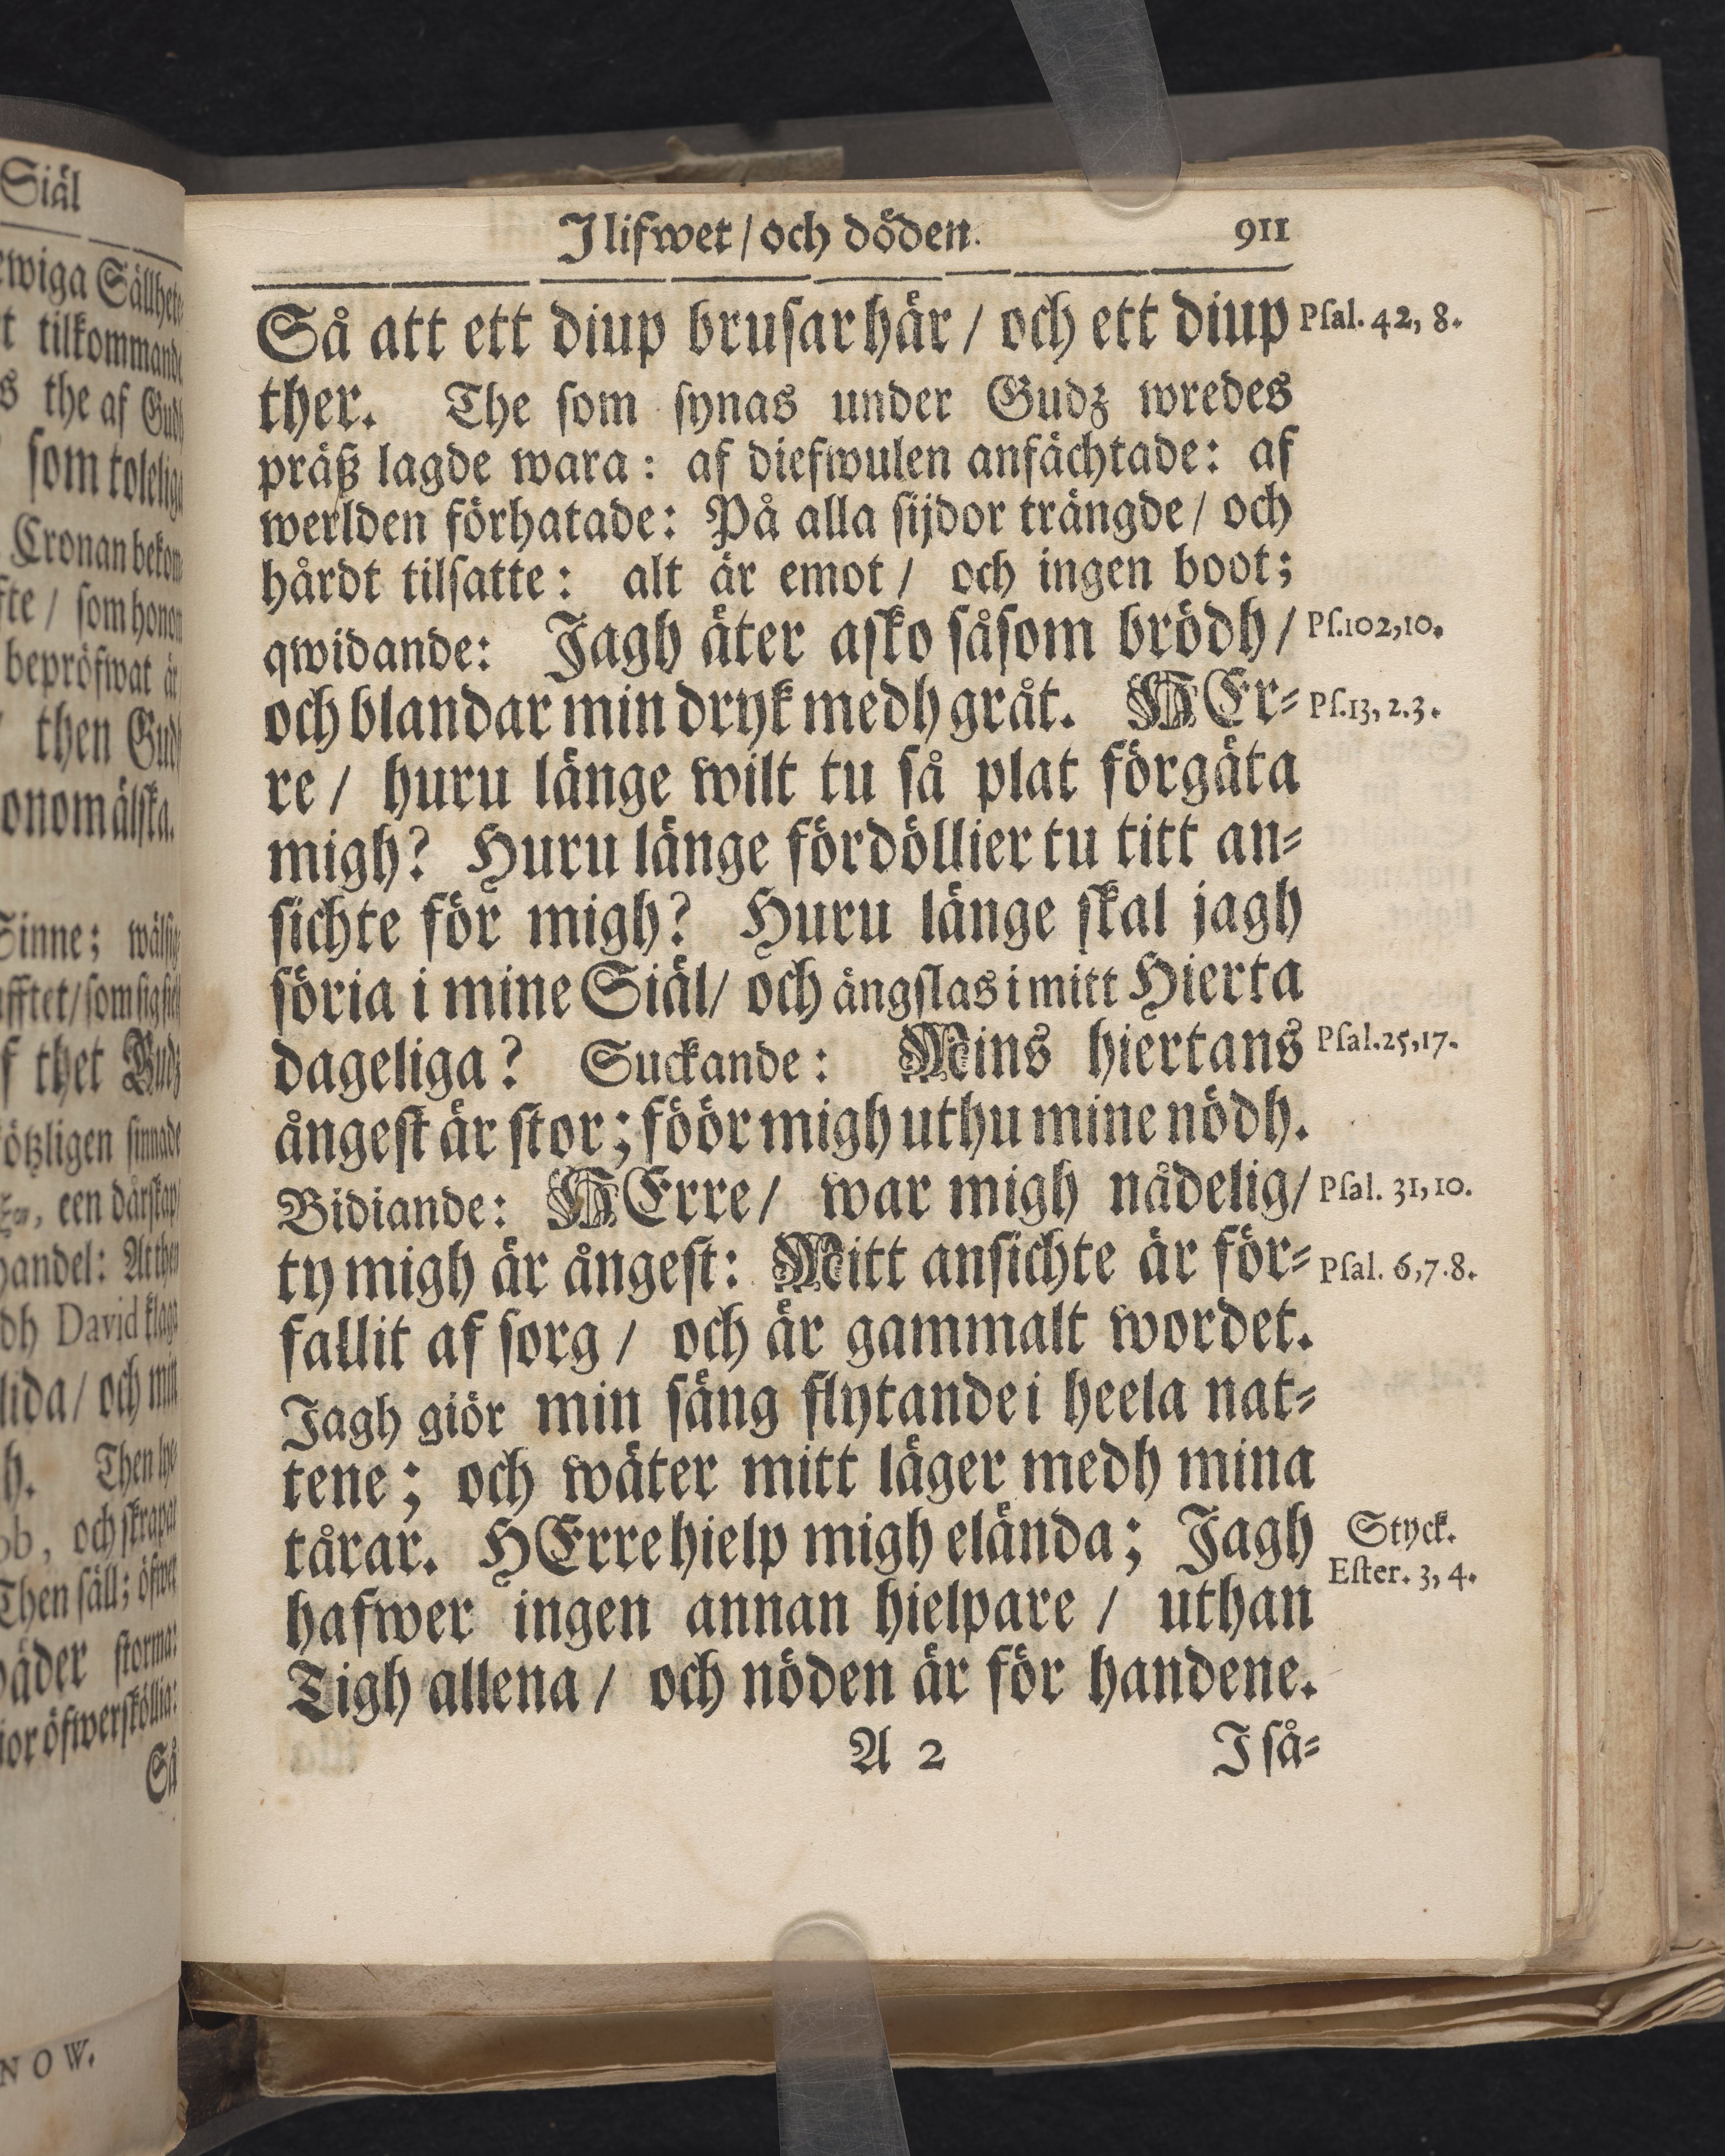 Siäl
ewiga Sällhet
tilkommande
s the af Gudh
som
Cronan bekom
/ som honom
bepröfwat är
then Gudh
onom älska.
Sinne;
thet Gudz
sinnade
een dårskap
handel: At then
dh David klaga
lida / och min
h. Then
ob, och skrapat
Then säll; öfwer
storma:
Så
NOW.
I lifwet / och döden. 911
Så att ett diup brusar här / och ett diup Psal. 42, 8.
ther. The som synas under Gudz wredes
präß lagde wara: af diefwulen anfächtade: af
werlden förhatade: På alla sijdor trängde / och
hårdt tilsatte: alt är emot / och ingen boot;
qwidande: Jagh äter asko såsom brödh / Ps.102,10.
och blandar min dryk medh gråt. HEr⸗ Ps.13, 2.3.
re / huru länge wilt tu så plat förgäta
migh? Huru länge fördöllier tu titt an⸗
sichte för migh? Huru länge skal jagh
söria i mine Siäl / och ängslas i mitt Hierta
dageliga? Suckande: Mins hiertans Psal.25,17.
ångest är stor; föör migh uthu mine nödh.
Bidiande: HErre / war migh nådelig / Psal. 31, 10.
ty migh är ångest: Mitt ansichte är för⸗ Psal. 6,7.8.
fallit af sorg / och är gammalt wordet.
Jagh giör min säng flytande i heela nat⸗
tene; och wäter mitt läger medh mina
tårar. HErre hielp migh elända; Jagh Styck.
Ester. 3, 4.
hafwer ingen annan hielpare / uthan
Tigh allena / och nöden är för handene.
A 2 I så⸗